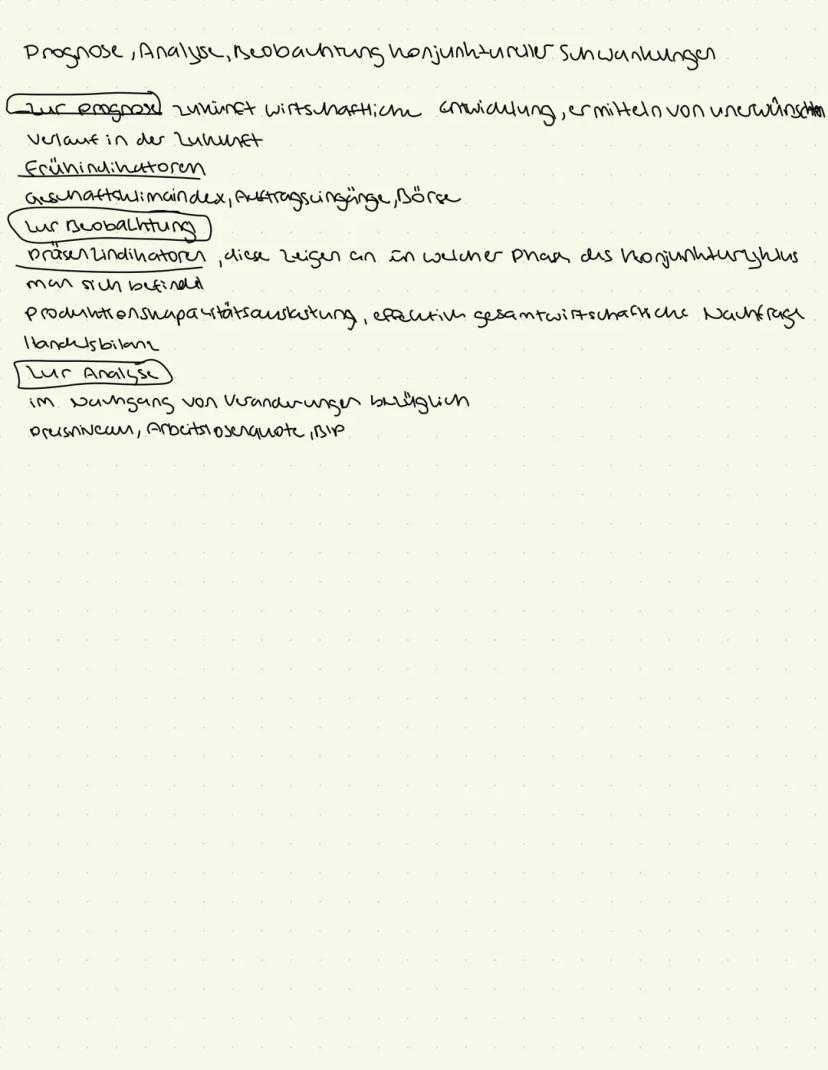 Prognose, Analyse, Beobachtung konjunktureller Schwankungen
zur Prognose zukünft wirtschaftliche Entwicklung, ermitteln von unerwünschten
Verlauf in der Zukunft
Frühindikatoren
Geschäftsklimaindex, Auftragseingänge, Börse
zur Beobachtung
Präsenzindikatoren, diese zeigen an in welcher Phase des Konjunkturzyklus
man sich befindet
Produktionskapazitätsauslastung, effektive gesamtwirtschaftliche Nachfrage
Handelsbilanz
zur Analyse
im Nachgang von Veränderungen bezüglich
Preisniveau, Arbeitslosenquote, BIP